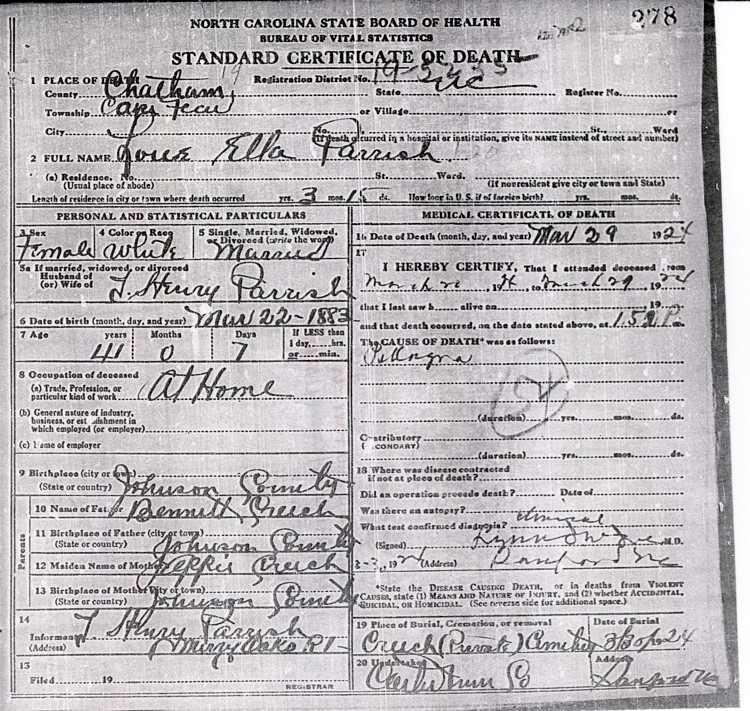 278
NORTH CAROLINA STATE BOARD OF HEALTH
BUREAU OF VITAL STATISTICS
STANDARD CERTIFICATE OF DEATH
1 PLACE OF DEATH
Registration District No. 19-
County Chatham State NC Register No.
Township Cape Fear or Village or
City No. St. Ward
(If death occurred in a hospital or institution, give its NAME instead of street and number)
2 FULL NAME Ella Parrish
(a) Residence. No. St. Ward.
(Usual place of abode) (If nonresident give city or town and State)
Length of residence in city or town where death occurred yrs. 3 mos. 15 ds. How long in U.S. if of foreign birth? yrs. mos. ds.
PERSONAL AND STATISTICAL PARTICULARS
3 Sex 4 Color or Race 5 Single, Married, Widowed, or Divorced (write the word)
Female White Married
5a If married, widowed, or divorced
Husband of
(or) Wife of J. Henry Parrish
6 Date of birth (month, day, and year) Mar 22-1883
7 Age years Months Days If LESS than 1 day, hrs. or min.
41 0 7
8 Occupation of deceased
(a) Trade, Profession, or particular kind of work At Home
(b) General nature of industry, business, or establishment in which employed (or employer)
(c) Name of employer
9 Birthplace (city or town)
(State or country) Johnson County
Parents
10 Name of Father Bennett Creech
11 Birthplace of Father (city or town)
(State or country) Johnson County
12 Maiden Name of Mother Creech
13 Birthplace of Mother (city or town)
(State or country) Johnson County
14
Informant J Henry Parrish
(Address) Merry Oaks R1
15
Filed 19
REGISTRAR
MEDICAL CERTIFICATE OF DEATH
16 Date of Death (month, day, and year) Mar 29 1924
17
I HEREBY CERTIFY, That I attended deceased from
March 19 24 to March 29 1924
that I last saw h alive on 19
and that death occurred, on the date stated above, at P m.
The CAUSE OF DEATH* was as follows:
Pellagra
(duration) yrs. mos. ds.
Contributory
(SECONDARY)
(duration) yrs. mos. ds.
18 Where was disease contracted
if not at place of death?
Did an operation precede death? Date of
Was there an autopsy?
What test confirmed diagnosis? Clinical
(Signed) M.D.
1924 (Address) Sanford NC
*State the DISEASE CAUSING DEATH, or in deaths from VIOLENT
CAUSES, state (1) MEANS AND NATURE OF INJURY, and (2) whether ACCIDENTAL,
SUICIDAL, or HOMICIDAL. (See reverse side for additional space.)
19 Place of Burial, Cremation, or removal Date of Burial
Creech (Private) Cemetery 24
20 Undertaker Address
Co Sanford NC